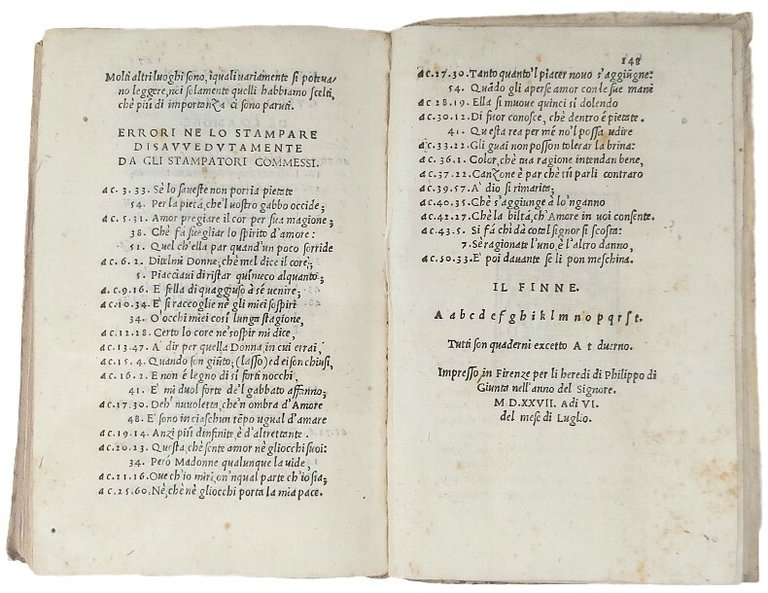 Molti altri luoghi sono, i quali variamente si poteua-
no leggere, nei solamente quelli habbiamo scelti,
chè piú di importanza ci sono paruti.
ERRORI NE LO STAMPARE
DISAVVEDVTAMENTE
DA GLI STAMPATORI COMMESSI.
ac. 3. 33. Sè lo saueste non porria pietate
54. Per la pietá, che'l uostro gabbo occide;
ac. 5. 31. Amor pregiare il cor per sua magione;
38. Chè fa suegliar lo spirito d'amore:
51. Quel ch'ella par quand'un poco sorride
ac. 6. 2. Ditelmi Donne, chè mel dice il core;
5. Piacciaui di ristar qui meco alquanto;
ac. 9. 16. E fella di qua ggiuso à sé uenire;
ac. 10. 34. E' si raccoglie nè gli miei sospiri
34. O'occhi miei cosí lunga stagione,
ac. 12. 28. Certo lo core ne' sospir mi dice,
ac. 13. 47. A' dir per quella Donna, in cui errai,
ac. 15. 4. Quando son giúto; (lasso) ed ei son chiusi,
ac. 16. 2. E non é legno di sí forti nocchi,
41. E' mi duol forte de'l gabbato affanno;
ac. 17. 30. Deh' nuuoletta, che'n ombra d'Amore
48. E' sono in ciaschun tẽpo ugual d'amare
ac. 19. 14. Anzi piú d'infinite, è d'altrettante.
ac. 20. 23. Questa, chè sente amor nè gliocchi suoi:
34. Peró Madonne qualunque la uide,
ac. 21. 16. Oue ch'io miri, on'nqual parte ch'io sia;
ac. 25. 60. Nè, chè nè gliocchi porta la mia pace.
148
ac. 17. 30. Tanto quanto'l piacer nouo s'aggiũgne:
54. Quãdo gli aperse amor con le sue mani
ac 28. 19. Ella si muoue quinci si dolendo
ac. 30. 12. Di fuor conosce, chè dentro é pietate.
41. Questa rea per mé no'l possa udire
ac. 33. 22. Gli guai non posson tolerar la brina:
ac. 36. 1. Color, chè tua ragione intendan bene,
ac. 37. 22. Canzone è par chè tu parli contraro
ac. 39. 57. A' dio si rimarita;
ac. 40. 35. Chè s'aggiunge á lo'nganno
ac. 42. 27. Chè la biltá, ch'Amore in uoi consente.
ac. 43. 5. Si fá chi dà cotal signor si scosta:
7. Sè ragionate l'uno, è l'altro danno,
ac. 50. 33. E' poi dauante se li pon meschina.
IL FINNE.
A a b c d e f g h i k l m n o p q r s t.
Tutti son quaderni excetto A t duerno.
Impresso in Firenze per li heredi di Philippo di
Giunta nell'anno del Signore.
M D. XXVII. A di VI.
del mese di Luglio.